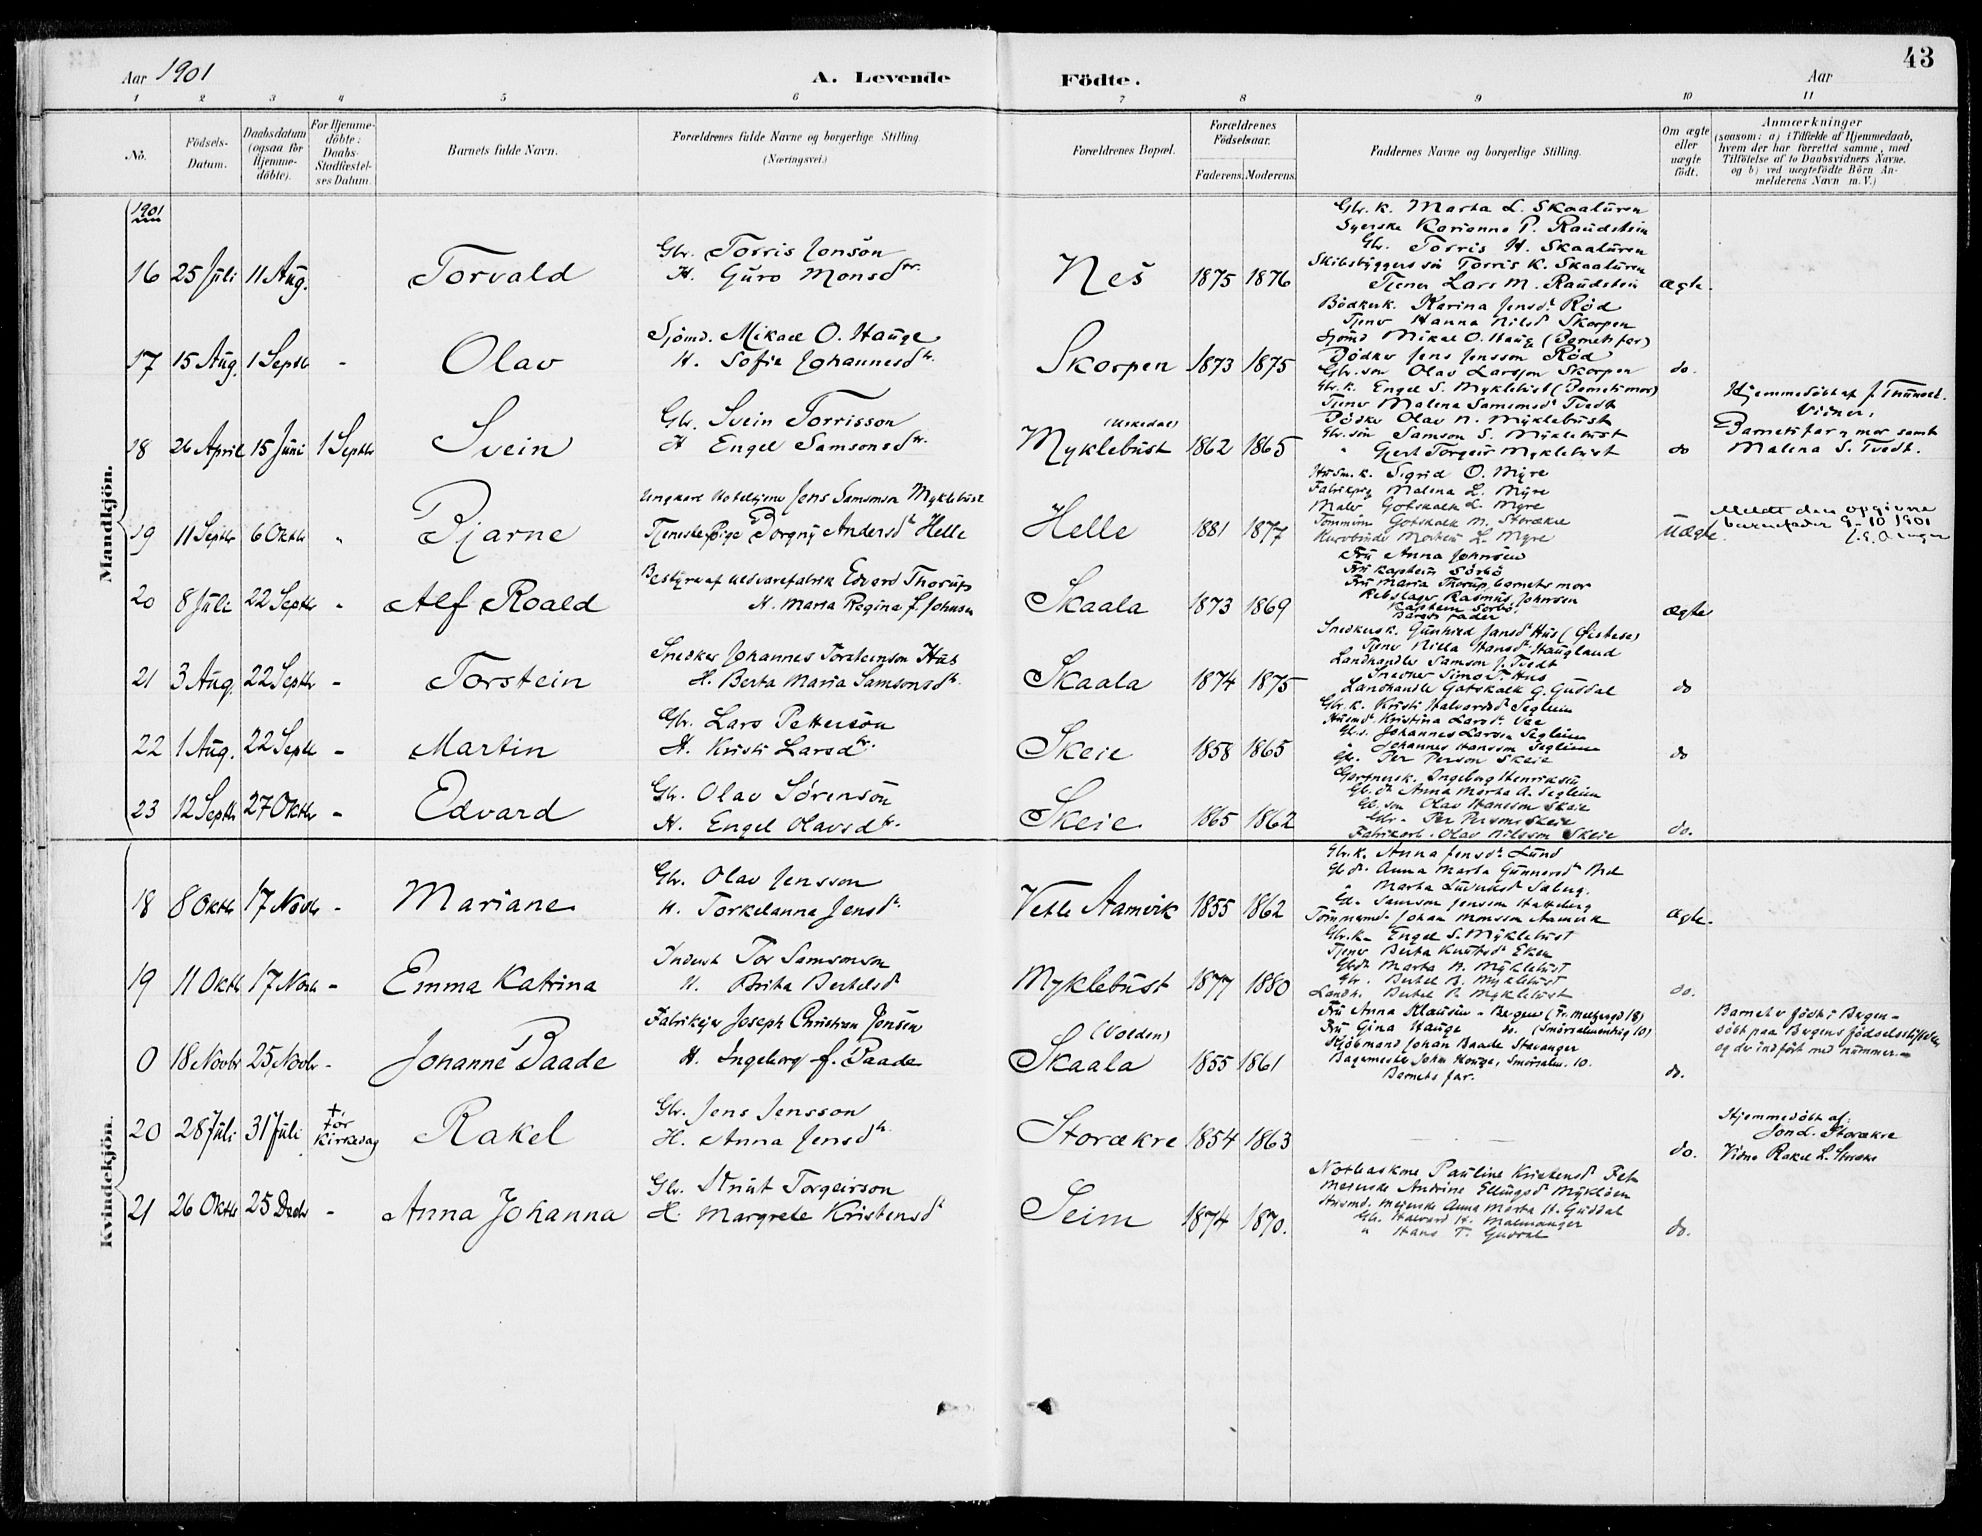 43
Aar 1901
A. Levende Födte.
Aar
1 2 3 4 5 6 7 8 9 10 11
No.
Födsels-Datum.
Daabsdatum (ogsaa for Hjemme-döbte).
For Hjemme-döbte: Daabs-Stadfæstel-ses Datum.
Barnets fulde Navn.
Forældrenes fulde Navne og borgerlige Stilling.
(Næringsvei.)
Forældrenes Bopæl.
Forældrenes Födselsaar.
Faderens. Moderens.
Faddernes Navne og borgerlige Stilling.
Om ægte eller uægte födt.
Anmærkninger
(saasom: a) i Tilfælde af Hjemmedaab,
hvem der har forrettet samme, med
Tilföielse af to Daabsvidners Navne.
og b) ved uægtefödte Börn An-
melderens Navn m. V.)
Mandkjön.
1901
16 25 Juli 11 Aug. Torvald
Gbr. Torris Jonson
H. Guro Monsdtr.
Nes 1875 1876
Gbr. k. Marta L. Skaaluren
Syerske Karianne P. Raudstein
Gbr. Torris H. Skaaluren
Skibsbyggers søn Torris K. Skaaluren
Tjener Lars M. Raudstein
ægte.
17 15 Aug. 1 Septbr - Olav
Sjömd. Mikael O. Hauge
H. Sofie Johannesdtr.
Skorpen 1873 1875
Bödkerk. Karina Jensdt Röd
Tjener Hanna Nilsdt Skorpen
Sjömd Mikal O. Haug (Barnets far)
Bödker Jens Jensson Röd
Gbr. søn Olav Larsson Skorpen
do.
18 26 April 15 Juni 1 Septbr Svein
Gbr. Svein Torrisson
H Engel Samsonsdtr.
(Uskedal)
Myklebust 1862 1865
Gbr. k. Engel S. Myklebust (Barnets mor)
Tjener Malena Samsonsdt Tvedt
Bödker Olav N. Myklebust
Gbr. søn Samson S. Myklebust
" Gjert Torgeirs Myklebust
do
Hjemmedöbt af J.
Vidner:
Barnets far & mor samt
Malena S. Tvedt.
19 11 Septbr 6 Oktbr " Bjarne
Ungkarl Hoteltjener Jens Samsonsen Myklebust
Tjenestepige Borgny Andersdt Helle
Helle 1881 1877
Husm. k. Sigrid O. Myre
Fabrikpig Malena L. Myre
Maler Gotskalk L. Myre
Tömmerm Gotskalk M. Storækre
L. Myre
Uægte.
Meldt den opgivne
barnefader 9-10 1901
20 8 Juli 22 Septbr - Alf Roald
Bestyrer af Uldvarefabrik Edvard Thorup
H. Maria Regina f. Johnsen
Skaala 1873 1869
Fru Anna Johnsen
Fru Kaptein Sörbö
Fru Maria Thorup, barnets mor
Rebslager Rasmus Johnsen
Kaptein Sörbö.
Barnets fader
ægte
21 3 Aug. 22 Septbr - Torstein
Snedker Johannes Torsteinson Hus
H. Berta Maria Samsonsdt.
Skaala 1874 1875
Snedkersk. Gunhild Jansdt Hus (Östese)
Tjener Nilla Hansdt Haugland
Landhandler Samson J. Tvedt
Snedker Simon T. Hus
Landhandle Gotskalk G. Guddal
do
22 1 Aug. 22 Septbr - Martin
Gbr. Lars Pettersön
H. Kristi Larsdtr.
Skeie 1858 1865
Gbr. k. Kristi Halvardsdt Seglem
Husmd. Kristina Larsdt. Vae
Gbr s. Johannes Larsen Seglem
" Johannes Hansson Seglem
Gbr. Per Person Skeie
do
23 12 Septbr 27 Oktbr - Edvard
Gbr. Olav Sörensön
H. Engel Olavsdtr.
Skeie 1865 1862
Gartnersk. Ingeborg Henriksen
Gb. dt. Anna Marta A. Seglem
Gb. son Olav Hansson Skeie
Gbr. Per Person Skeie
Fabrikarb. Olav Nilsson Skeie
do.
Kvindekjön.
18 8 Oktbr 17 Novbr - Mariane
Gbr. Olav Jensson
H. Torkelanna Jensdt.
Vetle Aamvik 1855 1862
Gbr. k. Anna Jensdt. Lund
Gbdt. Anna Marta Gunnarsdt
Marta
Samson Jensson Hatteberg
Tömmermd. Johan Monsson Aamvik
ægte.
19 11 Oktbr 17 Novbr - Emma Katrina
Inderst Tor Samsonson
H. Brita Bertelsdt
Myklebust 1877 1880
Gbr. k. Engel S. Myklebust
Tjener Berta Knutsdt Eken
Gbdt. Marta N. Myklebust
Gbr. Bertel B. Myklebust
Landh. Bertel B. Myklebust
do.
0 18 Novbr 25 Novbr - Johanne Baade
Fabrikejer Joseph Christian Jensen
H. Ingeborg f. Baade
(Volden)
Skaala 1855 1861
Fru Anna Klausen - Bergen
Fru Gina Hauge do.
Kjöbmand Johan Baade Stavanger
Bagermester John Hauge, Smörsalm. 10.
Barnets far.
do.
Barnet er födt i Bergen -
döbt paa Bergens födselsstiftelse
og der indfört med nummer. -
20 28 Juli 31 Juli + för Kirkedag Rakel
Gbr. Jens Jensson
H. Anna Jensdtr.
Storækre 1854 1863
- - -
do.
Hjemmedöbt af:
Jon L. Storækre
Vidne Rakel L.
21 26 Oktbr 25 Decbr - Anna Johanna
Gbr. Knut Torgeirson
H. Margrete Kristensdt
Seim 1874 1870.
Pauline Kristensdt
Meierske Andrine Ellingsdt
Husmd. Meierske Anna Marta H. Guddal
Gbr. Halvard H. Malmanger
" Hans T. Guddal
do.